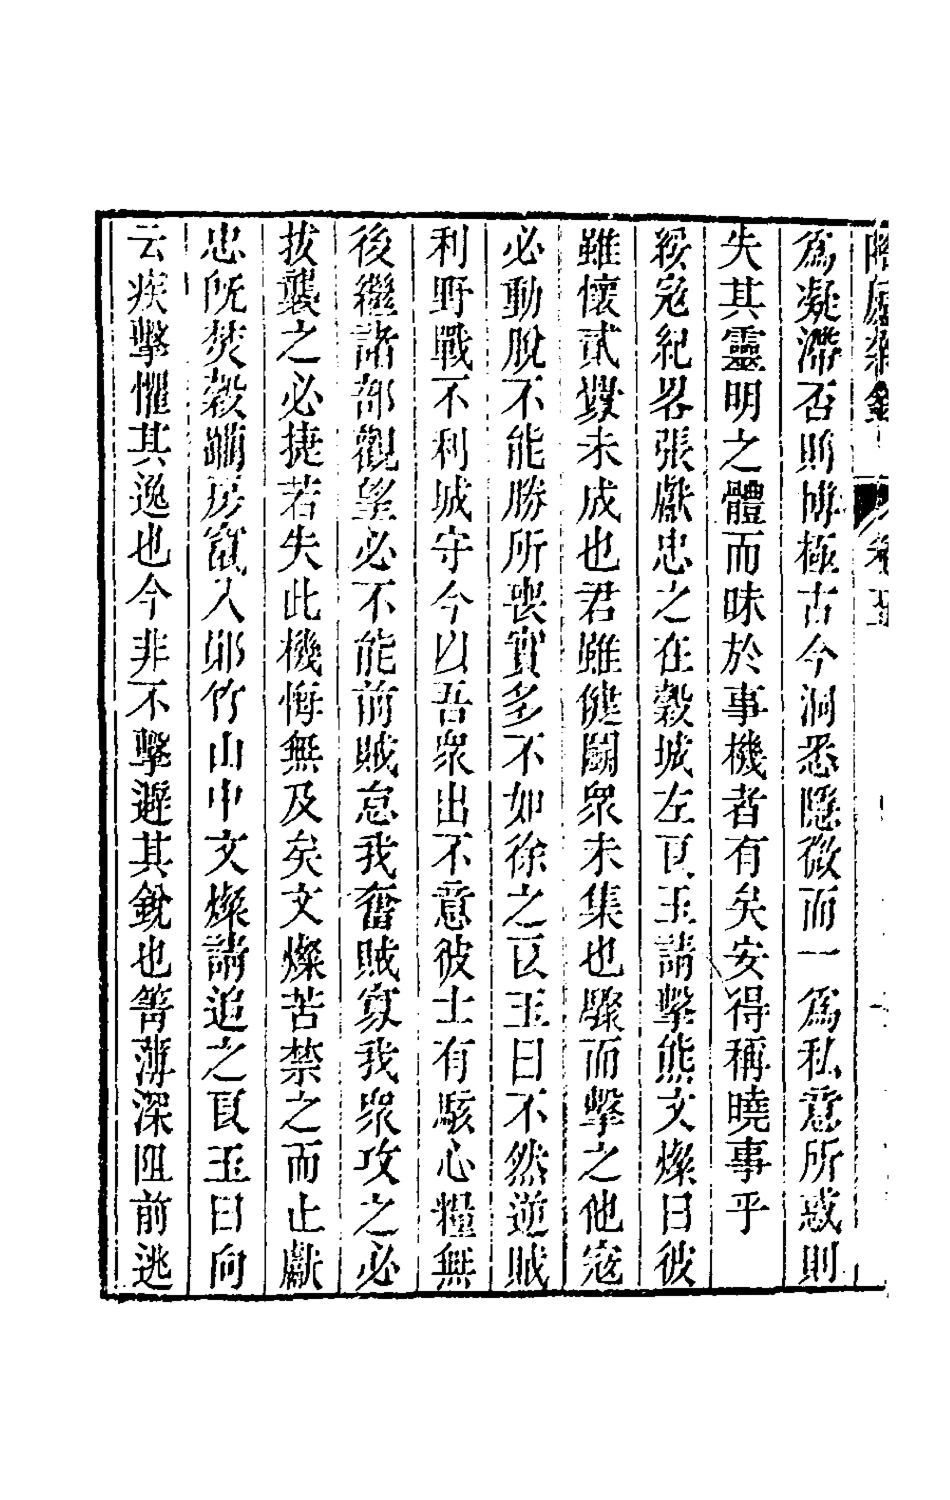 卷五
爲凝滯否則博極古今洞悉隱微而一爲私意所惑則
失其靈明之體而昧於事機者有矣安得稱曉事乎
綏宼紀畧張獻忠之在榖城左良玉請擊熊文燦曰彼
雖懷貳釁未成也君雖健鬭衆未集也驟而擊之他宼
必動脫不能勝所喪實多不如徐之良玉曰不然逆賊
利野戰不利城守今以吾衆出不意彼士有駭心糧無
後繼諸部觀望必不能前賊怠我奮賊寡我衆攻之必
拔襲之必捷若失此機悔無及矣文燦苦禁之而止獻
忠既焚榖蹦房竄入鄖竹山中文燦請追之良玉曰向
云疾擊懼其逸也今非不擊避其銳也箐薄深阻前逃